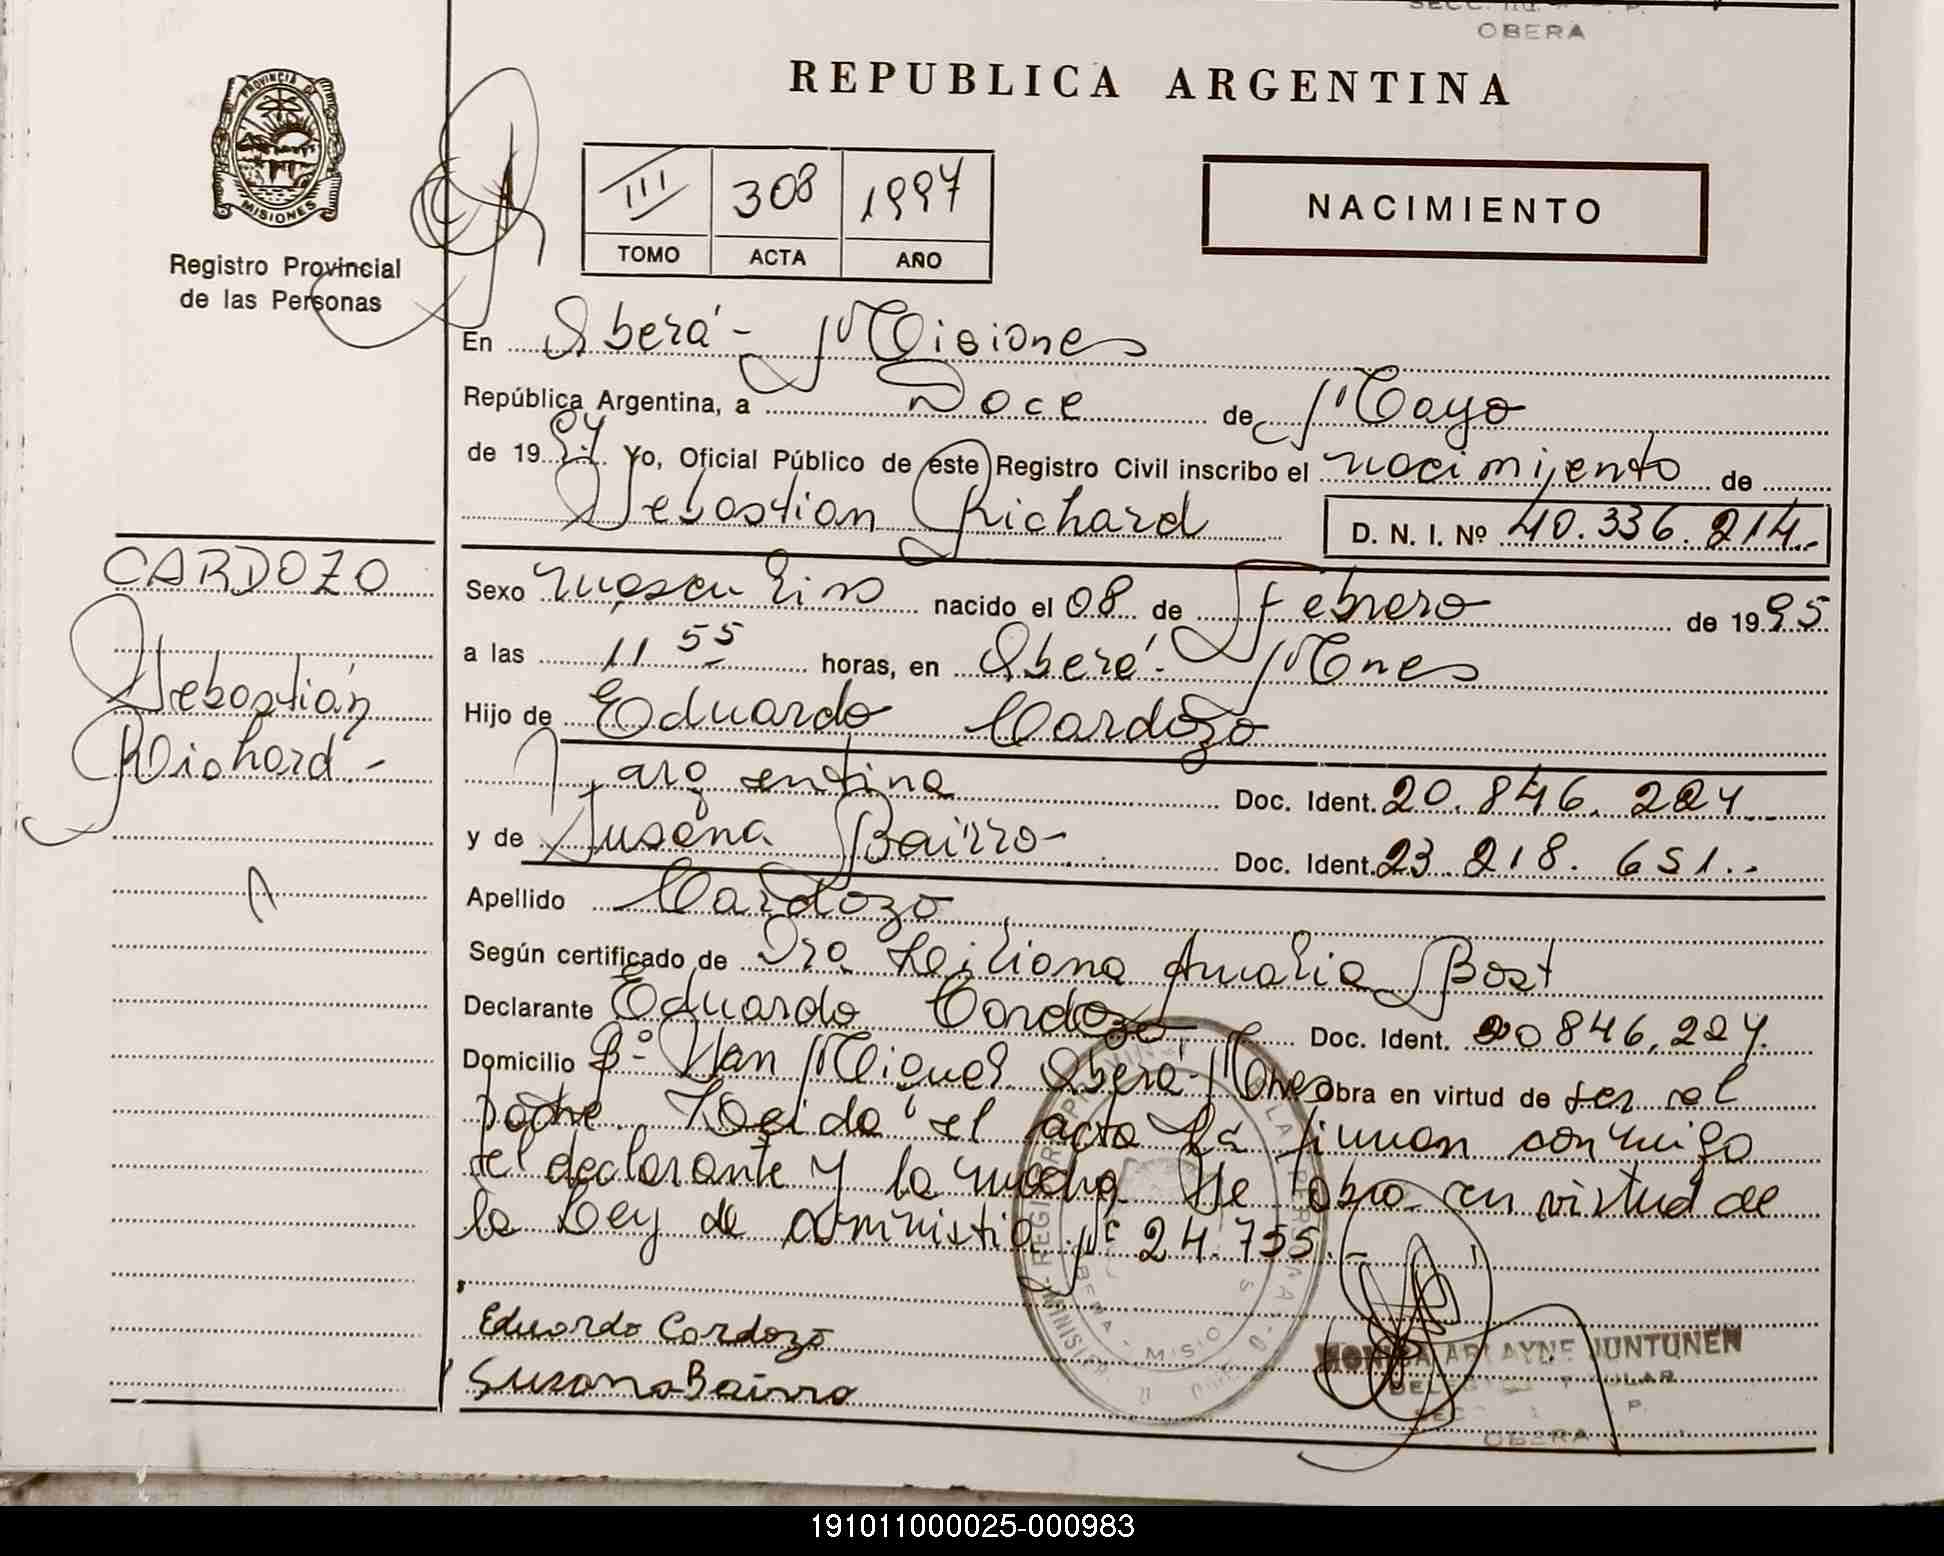 OBERA
REPUBLICA ARGENTINA
PROVINCIA DE
MISIONES
Registro Provincial
de las Personas
III 308 1997
TOMO ACTA AÑO
NACIMIENTO
En Oberá - Misiones
República Argentina, a Doce de Mayo
de 1997. Yo, Oficial Público de este Registro Civil inscribo el nacimiento de
Sebastian Richard D. N. I. Nº 40.336.214.-
CARDOZO
Sebastián
Richard -
Sexo masculino nacido el 08 de Febrero de 1995
a las 11 55 horas, en Oberá - Mones
Hijo de Eduardo Cardozo
argentina Doc. Ident. 20.846.227
y de Susana Bairro - Doc. Ident. 23.218.651..-
Apellido Cardozo
Según certificado de Dra Liliana Amalia Bost
Declarante Eduardo Cardozo Doc. Ident. 20846,227.
Domicilio Bº San Miguel Oberá - Mones Obra en virtud de ser el
padre. Leida el acta la firman conmigo
el declarante y la madre. Se obra en virtud de
la Ley de amnistia Nº 24.755.-
Eduardo Cardozo
Susana Bairro
MONICA ARLAYNE JUNTUNEN
OBERA
191011000025-000983